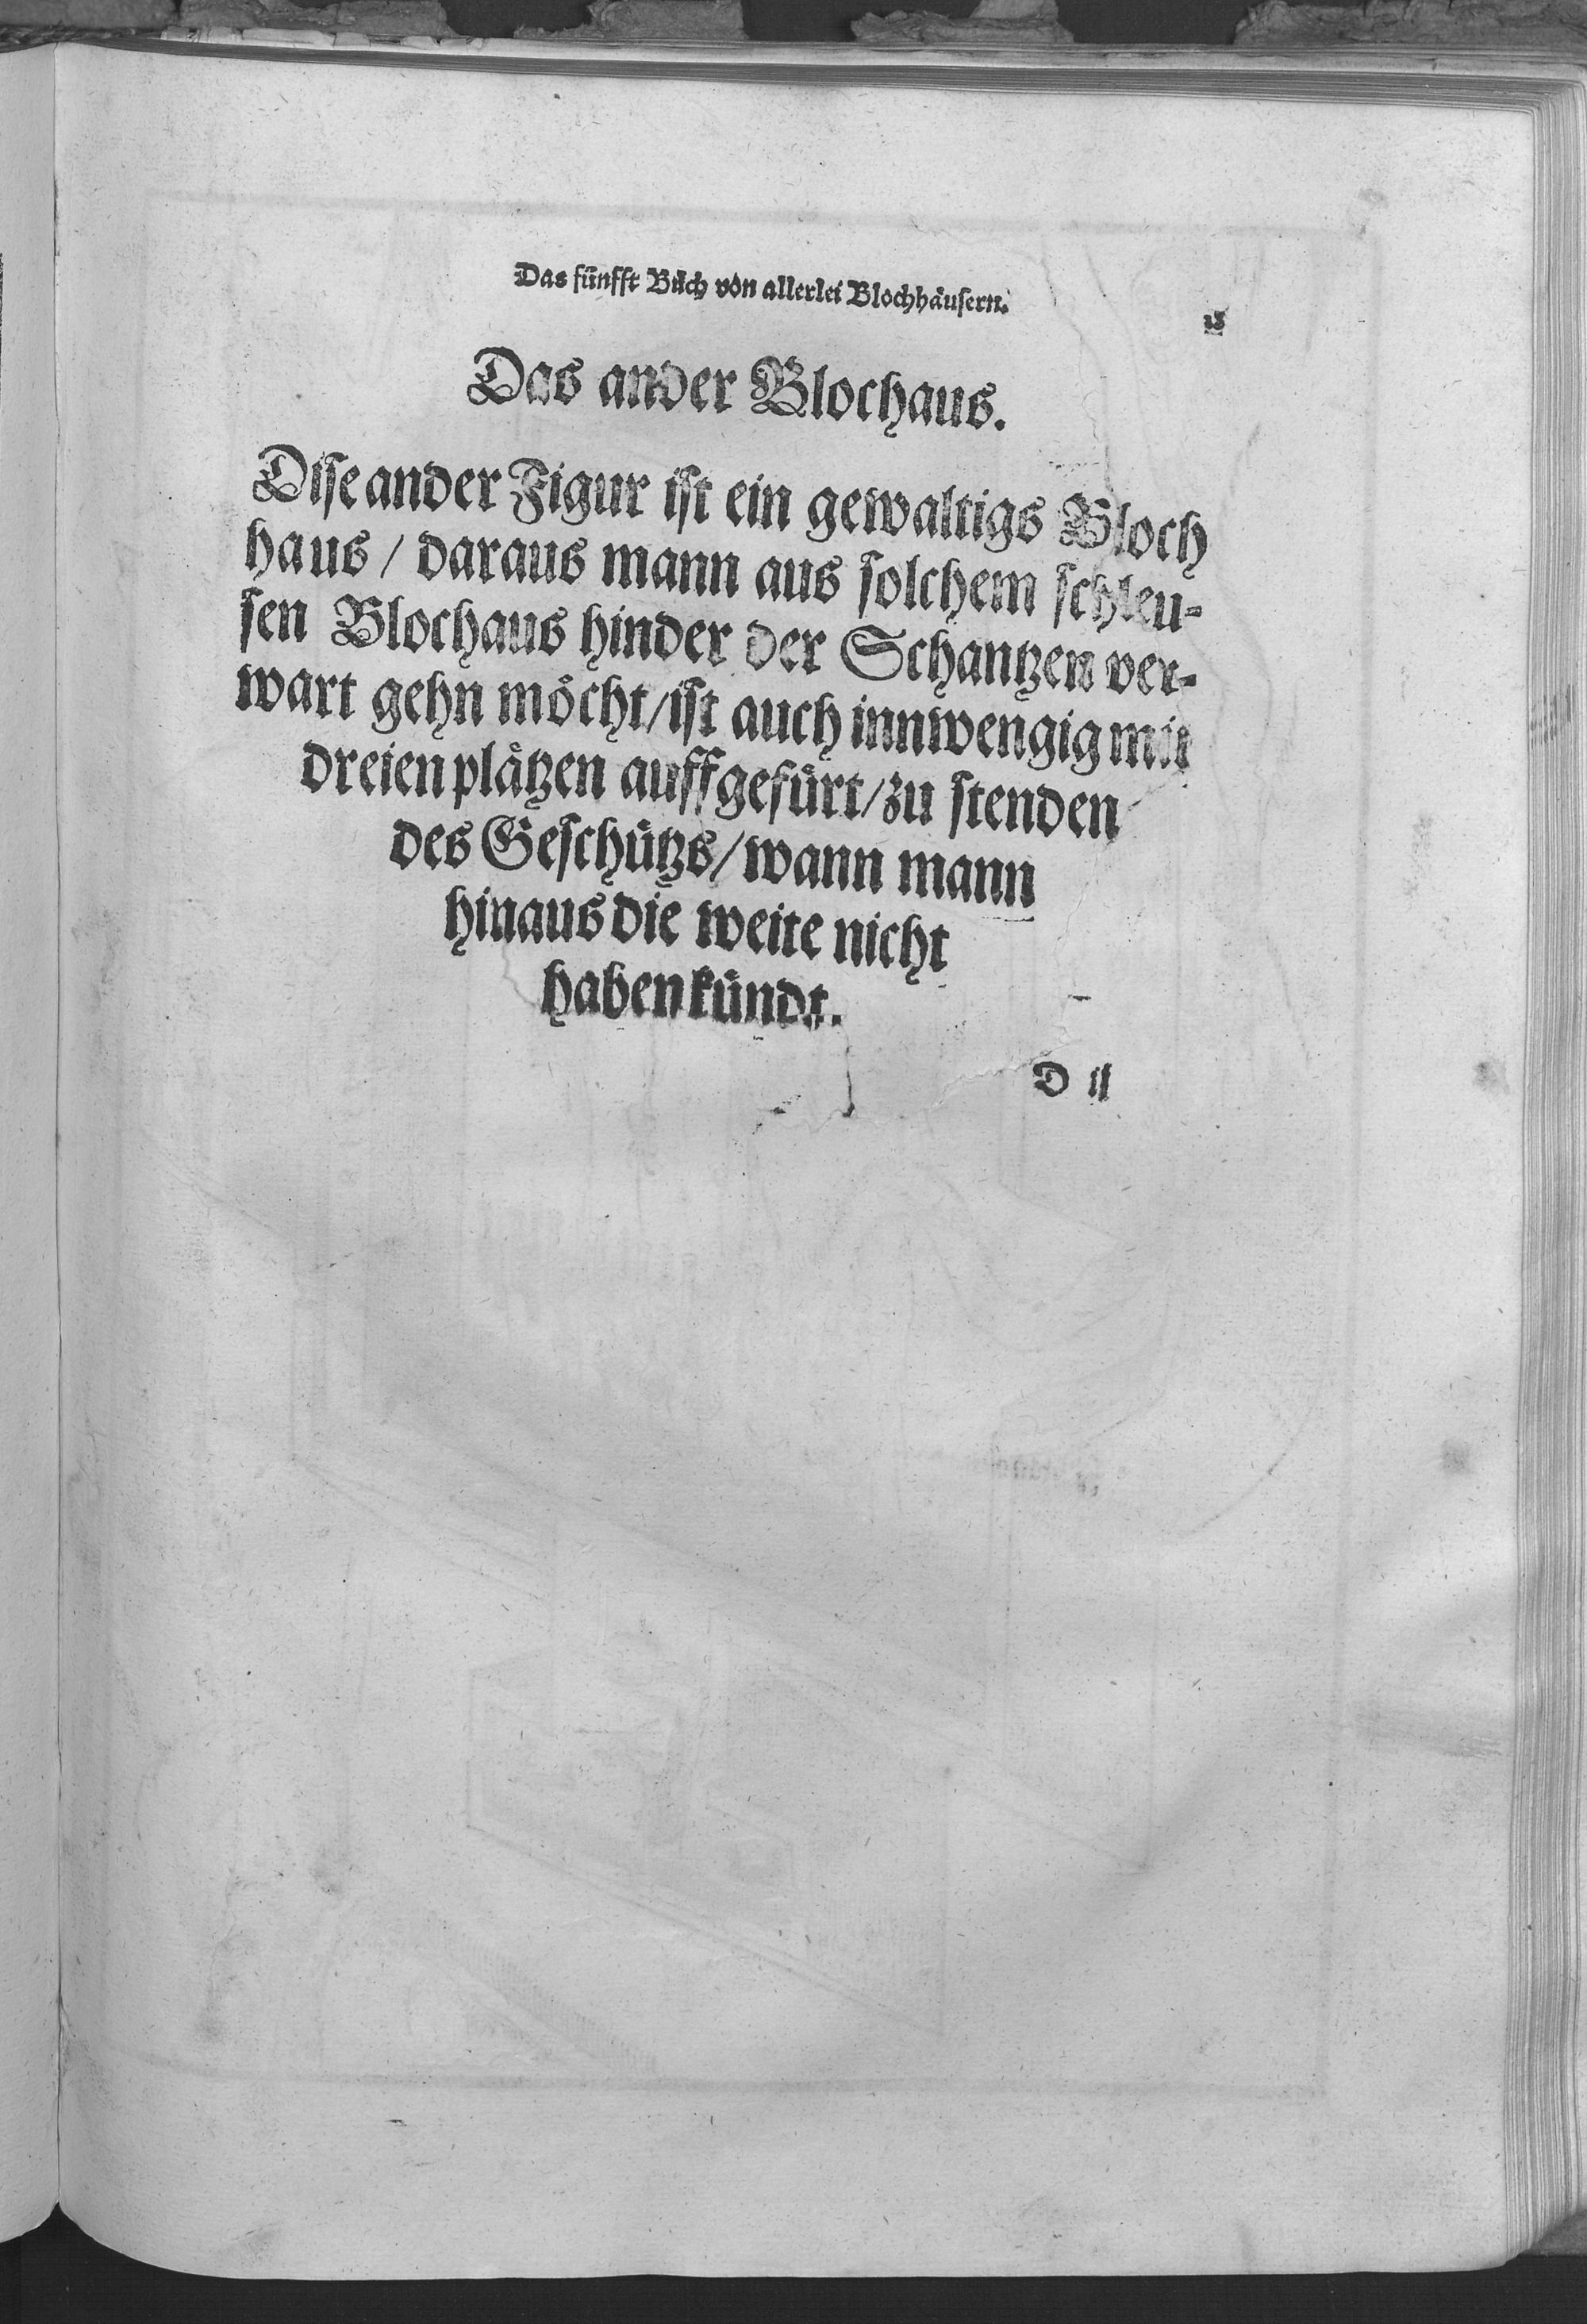 Das fünfft Bůch von allerlei Blochhäusern.
Das ander Blochaus.
Dise ander Figur ist ein gewaltigs Bloch
haus / daraus mann aus solchem schleu-
sen Blochaus hinder der Schantzen ver-
wart gehn möcht / ist auch innwengig mit
dreien plätzen auffgefürt / zu stenden
des Geschützs / wann mann
hinaus die weite nicht
haben kündt.
D ij